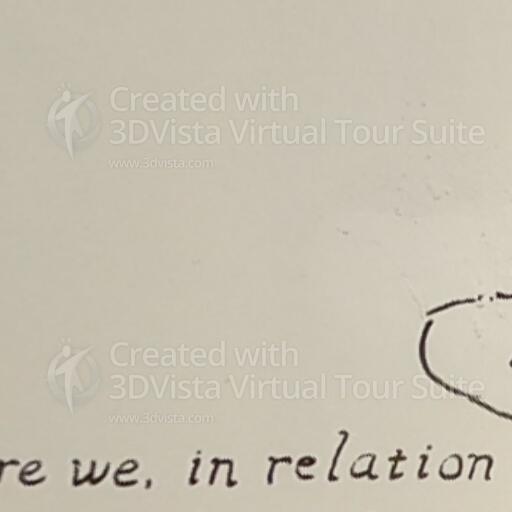 Created with
3DVista Virtual Tour Suite
www.3dvista.com
Created with
3DVista Virtual Tour Suite
www.3dvista.com
re we, in relation